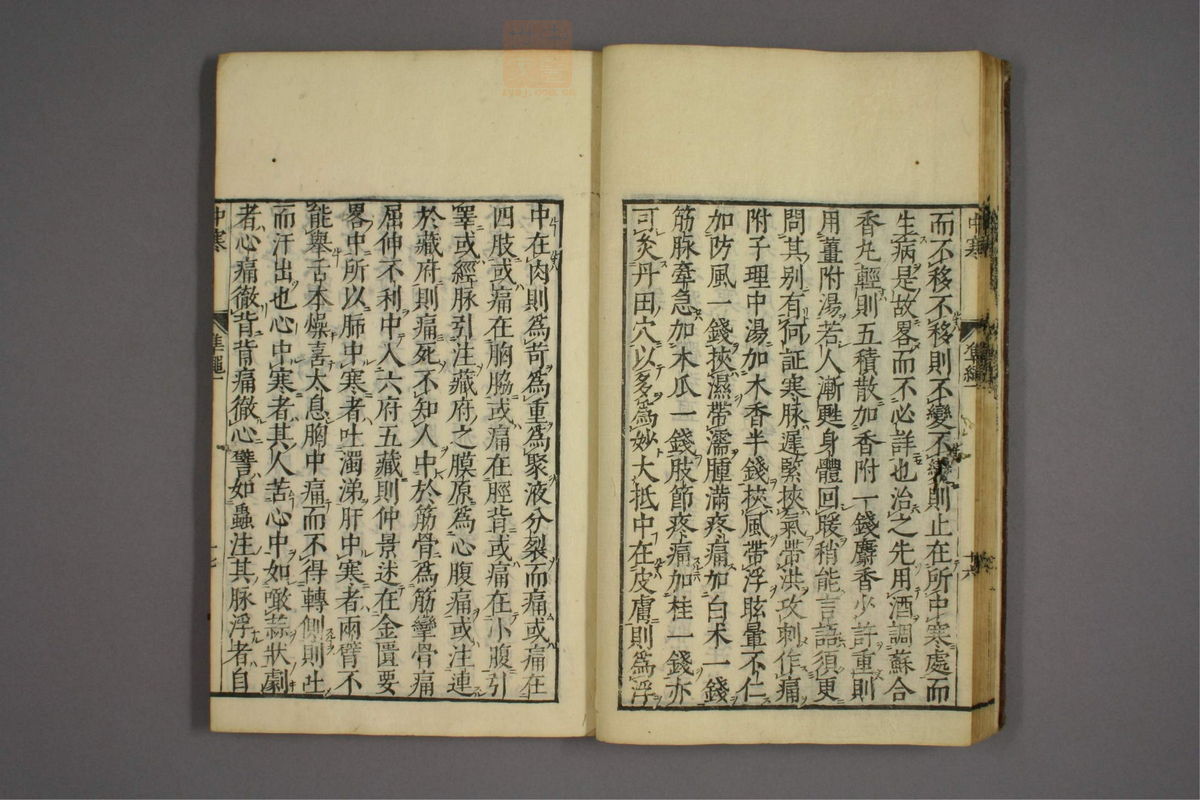 而不移不移則不變不變則止在所中寒處而
生病是故畧而不必詳也治之先用酒調蘇合
香丸輕則五積散加香附一錢麝香少許重則
用薑附湯若人漸甦身體回暖稍能言語須更
問其別有何証寒脉遲緊挾氣帶洪攻刺作痛
附子理中湯加木香半錢挾風帶浮眩暈不仁
加防風一錢挾濕帶濡腫滿疼痛加白术一錢
筋脉牽急加木瓜一錢肢節疼痛加桂一錢亦
可灸丹田穴以多為妙大抵中在皮膚則為浮
中在肉則為苛為重為聚液分裂而痛或痛在
四肢或痛在胸脇或痛在脛背或痛在小腹引
睪或經脉引注藏府之膜原為心腹痛或注連
於藏府則痛死不知人中於筋骨為筋攣骨痛
屈伸不利中入六府五藏則仲景述在金匱要
畧中所以肺中寒者吐濁涕肝中寒者兩臂不
能舉舌本燥喜太息胸中痛而不得轉側則吐
而汗出也心中寒者其人苦心中如噉蒜狀劇
者心痛徹背背痛徹心譬如蟲注其脉浮者自
中寒